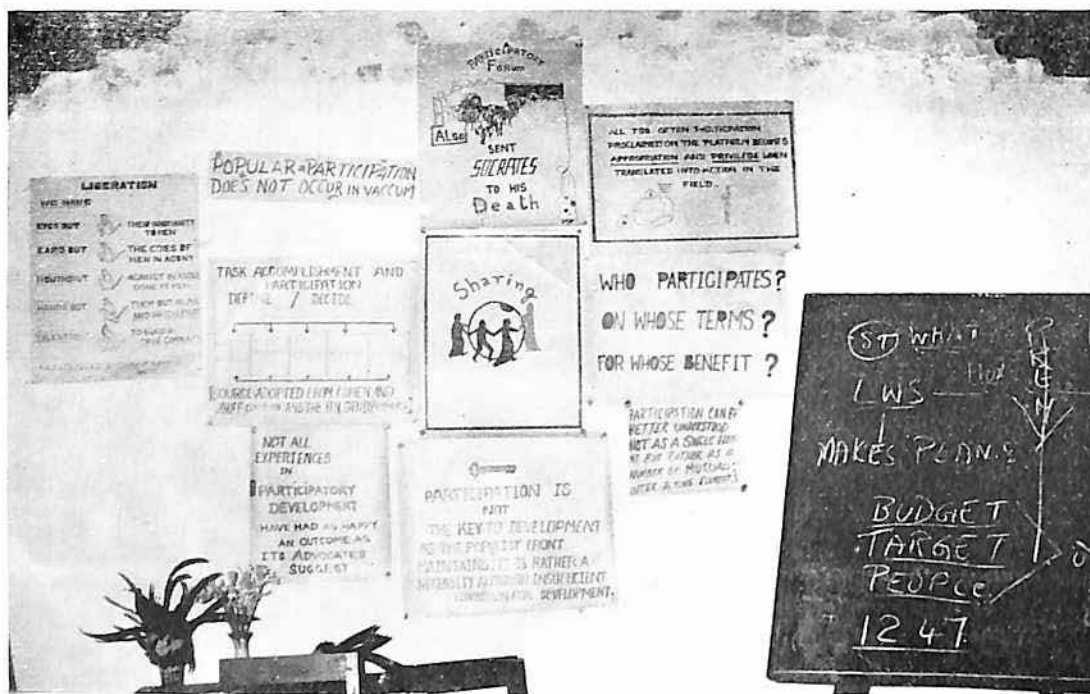 LIBERATION
WE HAVE
EYES BUT
EARS BUT
THE CRIES OF
MEN IN AGONY
MOUTHS BUT
HANDS BUT
POPULAR PARTICIPATION
DOES NOT OCCUR IN VACCUM
TASK ACCOMPLISHMENT AND
PARTICIPATION
DEFINE / DECIDE
SOURCE ADOPTED FROM COHEN AND
NOT ALL
EXPERIENCES
IN
PARTICIPATORY
DEVELOPMENT
HAVE HAD AS HAPPY
AN OUTCOME AS
ITS ADVOCATES
SUGGEST
PARTICIPATORY
FORUM
ALSO
SENT
SOCRATES
TO HIS
Death
Sharing
PARTICIPATION IS
NOT
THE KEY TO DEVELOPMENT
AS THE POPULIST FRONT
MAINTAINS IT IS RATHER A
NECESSITY ALTHOUGH INSUFFICIENT
CONDITION FOR DEVELOPMENT.
ALL TOO OFTEN PARTICIPATION
PROCLAIMED ON THE PLATFORM BECOMES
APPROPRIATION AND PRIVILEGE WHEN
TRANSLATED INTO ACTION IN THE
FIELD.
WHO PARTICIPATES?
ON WHOSE TERMS?
FOR WHOSE BENEFIT?
PARTICIPATION CAN BE
BETTER UNDERSTOOD
NOT AS A SINGLE
BUT RATHER AS A
NUMBER OF MUTUALLY
INTER ACTING ELEMENTS
ST WHAT
LWS
MAKES PLANS
BUDGET
TARGET
PEOPLE
1247